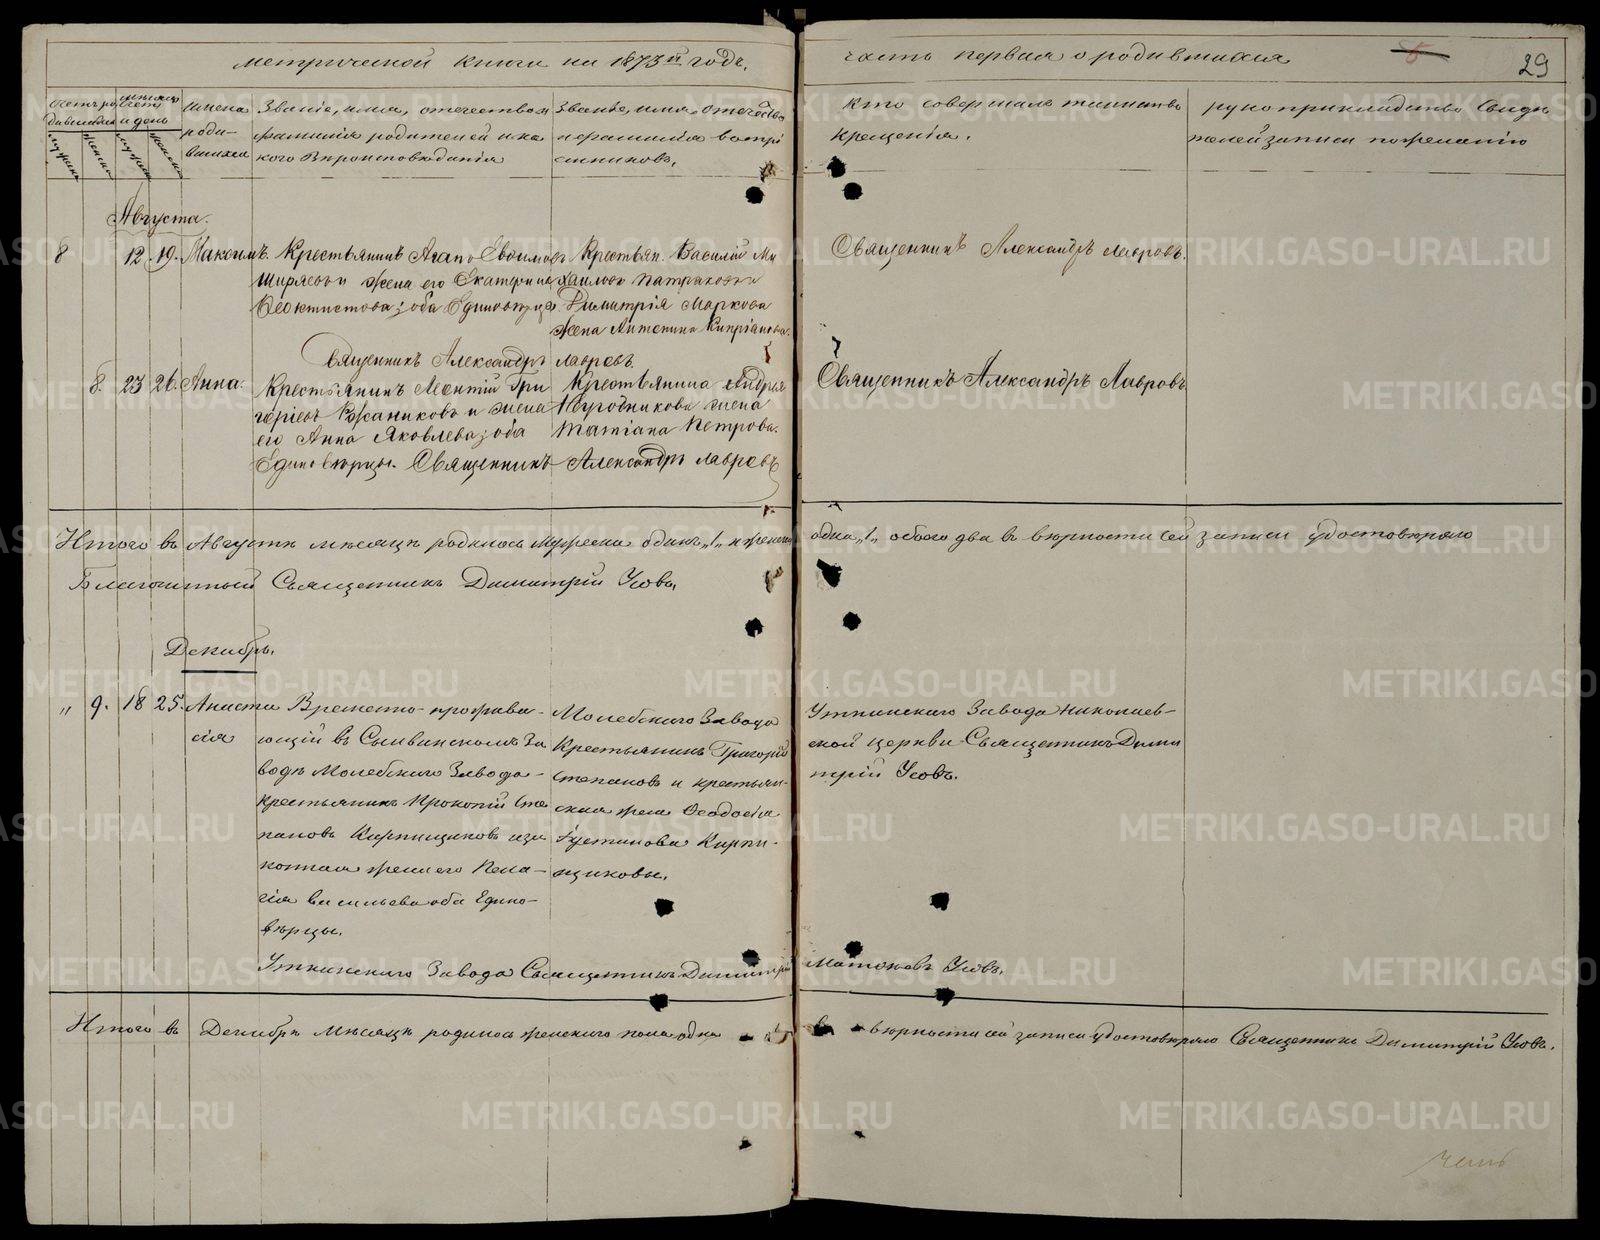 метрической книги на 1873й годъ,
часть первая о родившихся
29
Счетъ ро
дившихся
мѣсяцъ
и день
имена
роди-
вшихся
Званіе, имя, отчество и
фамилія родителей и ка
кого вѣроисповѣданія
Званіе, имя, отчество
и фамилія воспрі
емниковъ,
Кто совершалъ таинство
крещенія.
рукоприкладство свидѣ
телей записи по желанію
Августа.
8 12. 19. Максимъ.
Крестьянинъ Агапъ Евѳимовъ
и жена его Екатерина
Ѳеоктистова; оба Единовѣрцы
Крестьян. Василій Ми
хаиловъ
Димитрія Маркова
жена Антонина Кипріанова.
Священникъ Александръ Лавровъ.
Священникъ Александръ Лавровъ.
8. 23 26. Анна.
Крестьянинъ Леонтій Гри
горіевъ и жена
его Анна Яковлева; оба
Единовѣрцы. Священникъ Александръ Лавровъ
Крестьянина Андрея
жена
Татіана Петрова.
Священникъ Александръ Лавровъ
Итого въ Августѣ мѣсяцѣ родилось мужеска одинъ „1„ и женска одна „1„ обоего два въ вѣрности сей записи удостовѣряю
Благочинный Священникъ Димитрій Усовъ,
Декабрь.
„ 9. 18 25. Аниси
сія
Временно-прожива-
ющій въ Сылвинскомъ За
водѣ Молебскаго Завода-
крестьянинъ Прокопій Сте
пановъ Кирпищиковъ и за
конная жена его Пела-
гія Васильева оба Едино-
вѣрцы.
Молебскаго Завода
Крестьянинъ Григорій
Степановъ и крестьян-
ская жена Ѳеодосія
Устинова Кирпи-
щиковы.
Уткинскаго Завода Николаев-
ской церкви Священникъ Дими
трій Усовъ.
Уткинскаго Завода Священникъ Димитрій Усовъ.
Итого въ Декабрѣ мѣсяцѣ родилось женскаго пола одна въ вѣрности сей записи удостовѣряю Священникъ Димитрій Усовъ.
METRIKI.GASO-URAL.RU